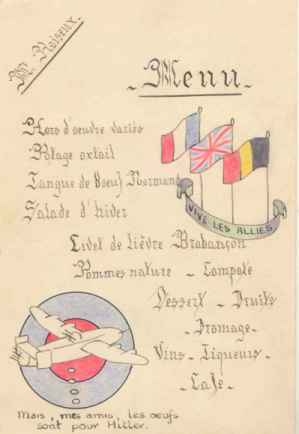 M. Raiseux.
Menu.
Hors d'oeuvre variés
Potage oxtail
Langue de Boeuf Normande
Salade d'hiver
VIVE LES ALLIES
Civet de lièvre Brabançon
Pommes nature - Compote
Dessert - Fruits
- Fromage -
Vins - Liqueurs -
- Café -
Mais, mes amis, les œufs
sont pour Hitler.